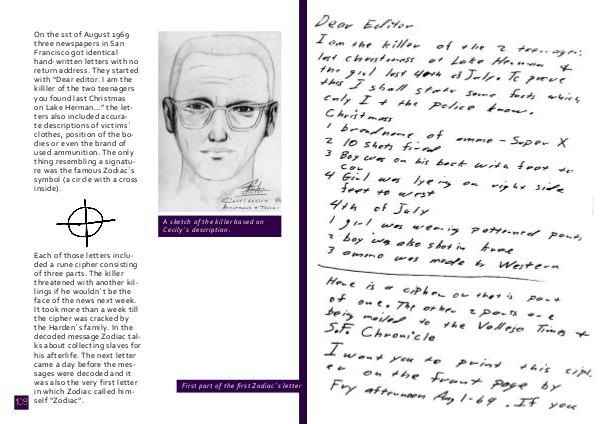 On the 1st of August 1969
three newspapers in San
Francisco got identical
hand-written letters with no
return address. They started
with "Dear editor. I am the
killler of the two teenagers
you found last Christmas
on Lake Herman..." the let-
ters also included accura-
te descriptions of victims'
clothes, position of the bo-
dies or even the brand of
used ammunition. The only
thing resembling a signatu-
re was the famous Zodiac's
symbol (a circle with a cross
inside).
Each of those letters inclu-
ded a rune cipher consisting
of three parts. The killer
threatened with another kil-
lings if he wouldn't be the
face of the news next week.
It took more than a week till
the cipher was cracked by
the Harden's family. In the
decoded message Zodiac tal-
ks about collecting slaves for
his afterlife. The next letter
came a day before the mes-
sages were decoded and it
was also the very first letter
in which Zodiac called him-
self "Zodiac".
108
A sketch of the killer based on
Cecily's description.
First part of the first Zodiac's letter
Dear Editor
I am the killer of the 2 teenagers
last christmass at Lake Herman &
the girl last 4th of July. To prove
this I shall state some facts which
only I + the police know.
Christmass
1 brand name of ammo - Super X
2 10 shots fired
3 Boy was on his back with feet to
car
4 Girl was lyeing on right side
feet to west
4th of July
1 girl was wearing patterned pants
2 boy was also shot in knee
3 ammo was made by Western
Here is a cipher or that is part
of one. The other 2 parts are
being mailed to the Vallejo Times +
S.F. Chronicle
I want you to print this ciph
er on the front page by
Fry afternoon Aug 1-69. If you